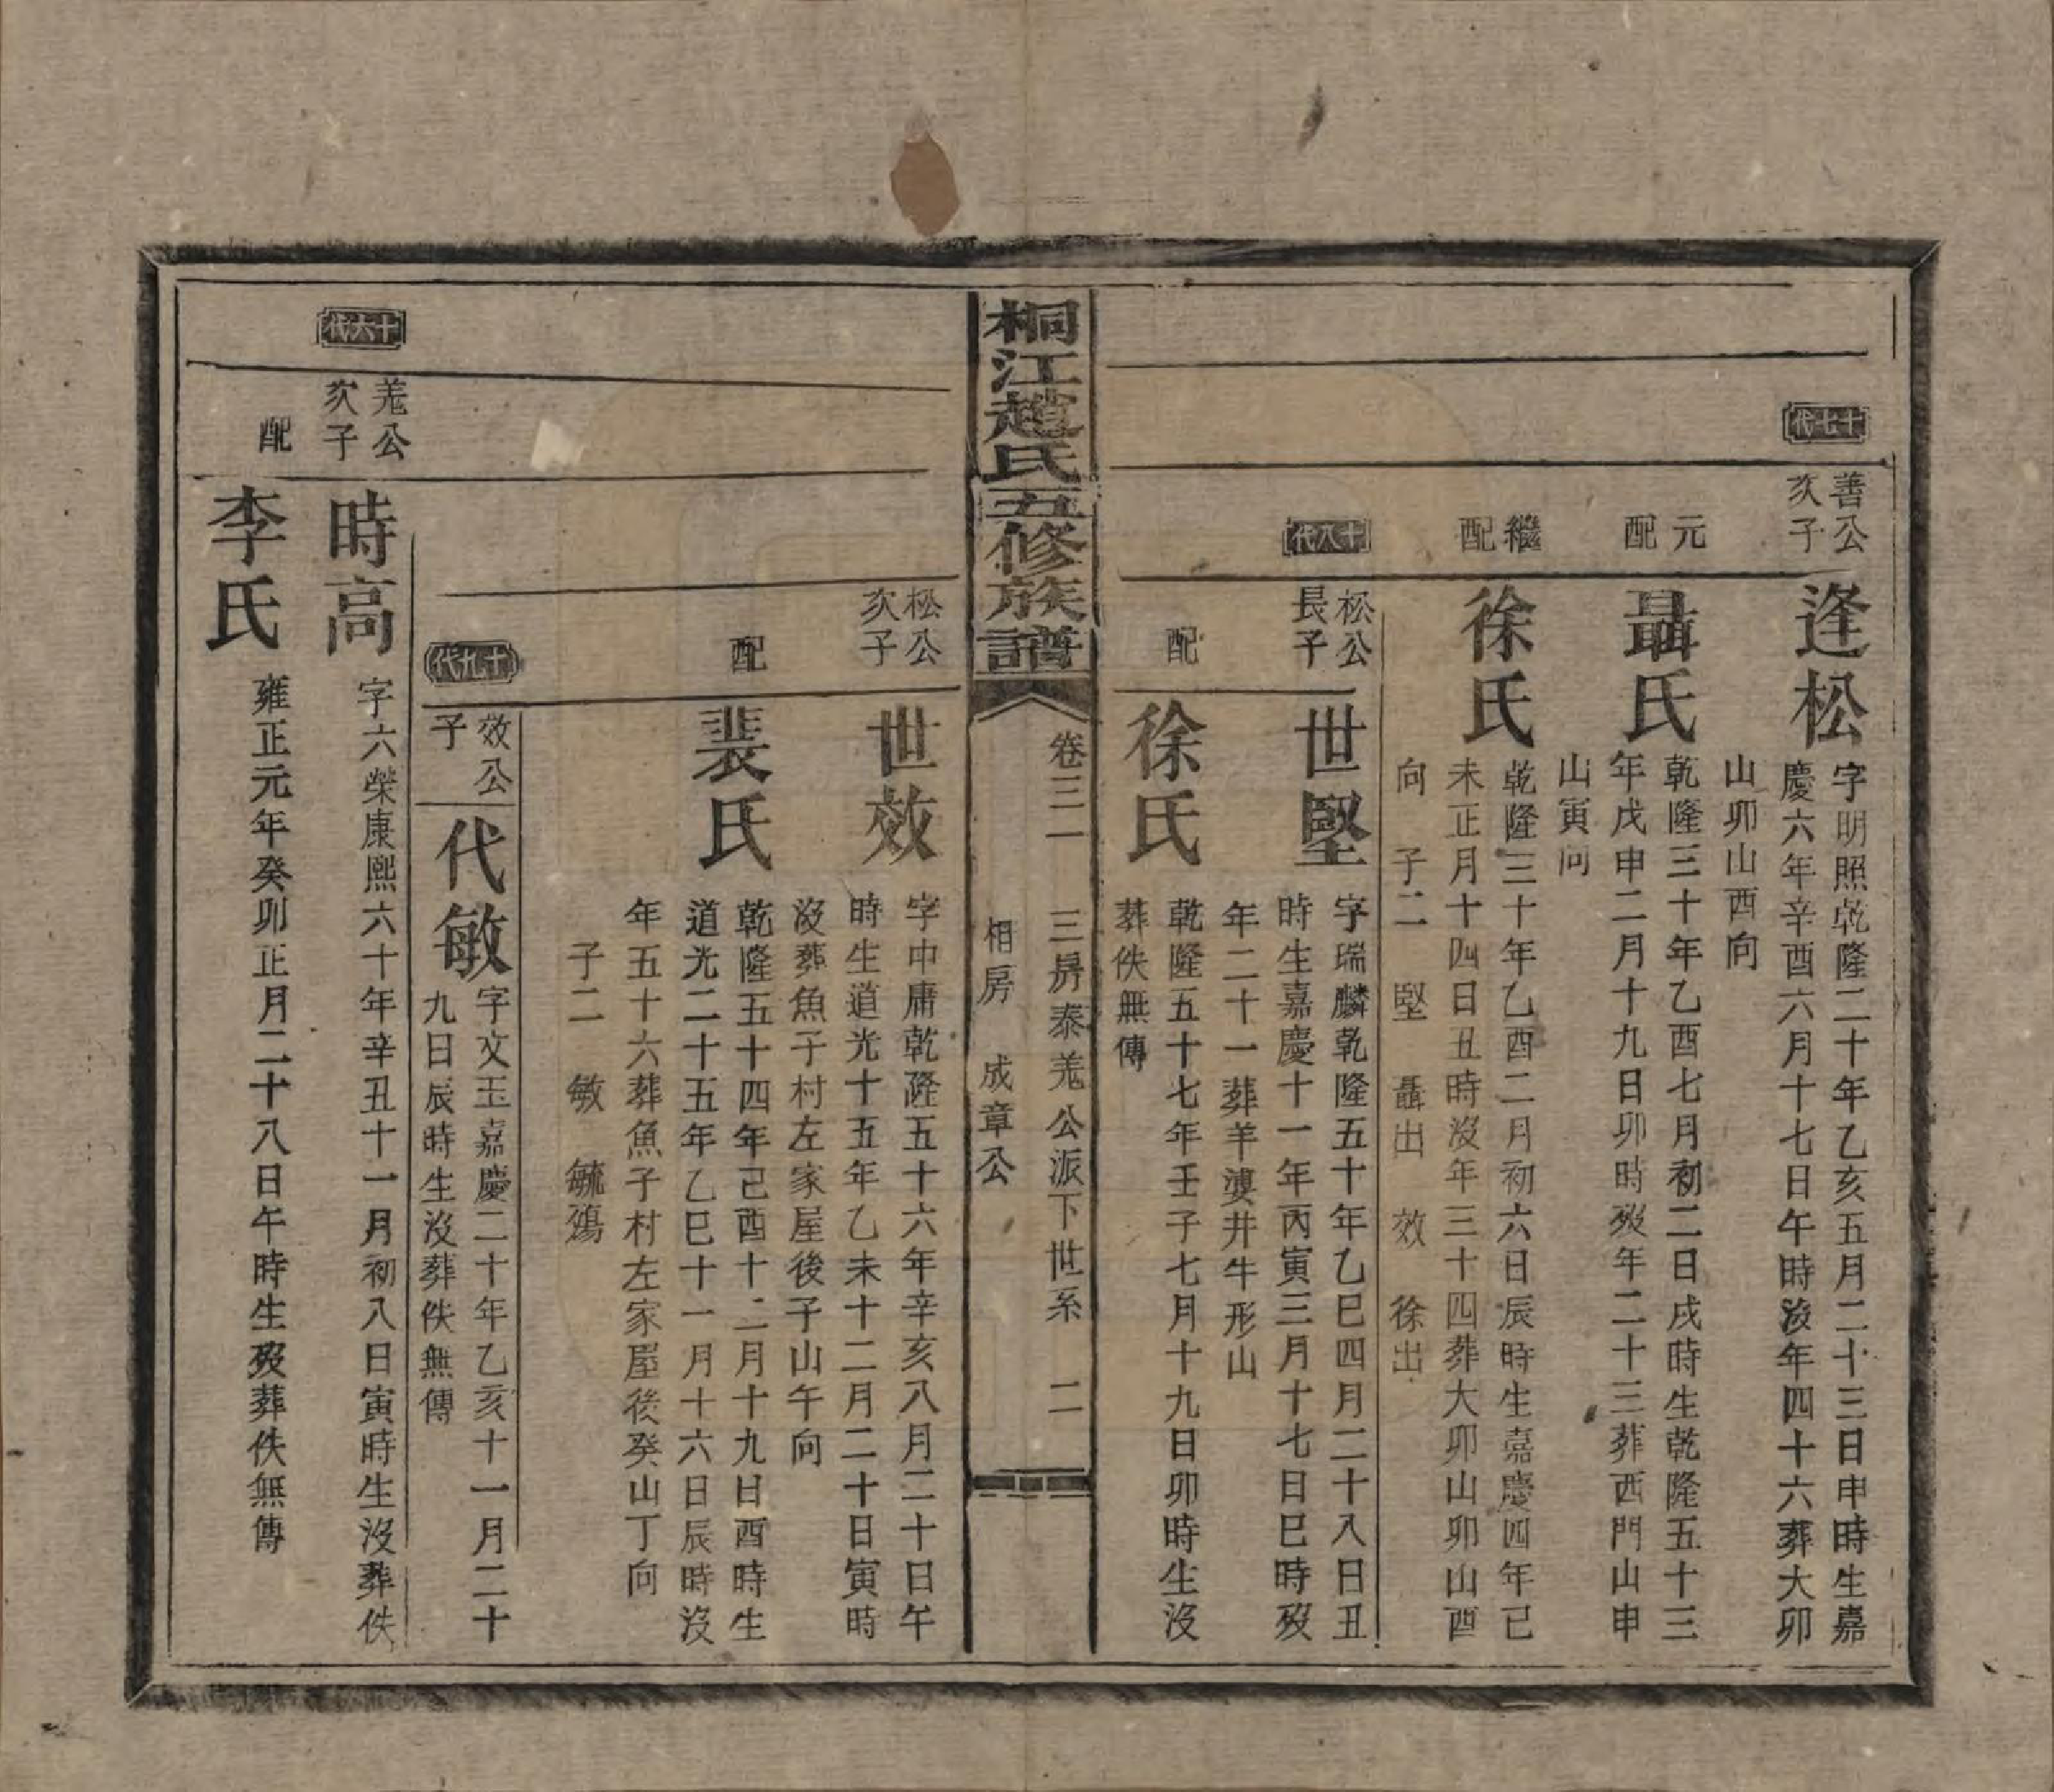 十七代
善公
次子
逢松
字明照乾隆二十年乙亥五月二十三日申時生嘉
慶六年辛酉六月十七日午時没年四十六葬大卯
山卯山酉向
元
配
聶氏
乾隆三十年乙酉七月初二日戌時生乾隆五十三
年戊申二月十九日卯時歿年二十三葬西門山申
山寅向
繼
配
徐氏
乾隆三十年乙酉二月初六日辰時生嘉慶四年己
未正月十四日丑時没年三十四葬大卯山卯山酉
向 子二 堅 聶出 效 徐出
十八代
松公
長子
世堅
字瑞麟乾隆五十年乙巳四月二十八日丑
時生嘉慶十一年丙寅三月十七日巳時歿
年二十一葬羊婆井牛形山
配
徐氏
乾隆五十七年壬子七月十九日卯時生没
葬佚無傳
桐江趙氏五修族譜
卷三一 三房泰羗公派下世系 二
相房 成章公
松公
次子
世效
字中庸乾隆五十六年辛亥八月二十日午
時生道光十五年乙未十二月二十日寅時
沒葬魚子村左家屋後子山午向
配
裴氏
乾隆五十四年己酉十二月十九日酉時生
道光二十五年乙巳十一月十六日辰時沒
年五十六葬魚子村左家屋後癸山丁向
子二 敏 毓殤
十九代
效公
子
代敏
字文玉嘉慶二十年乙亥十一月二十
九日辰時生沒葬佚無傳
十六代
羗公
次子
時高
字六榮康熙六十年辛丑十一月初八日寅時生沒葬佚
配
李氏
雍正元年癸卯正月二十八日午時生歿葬佚無傳